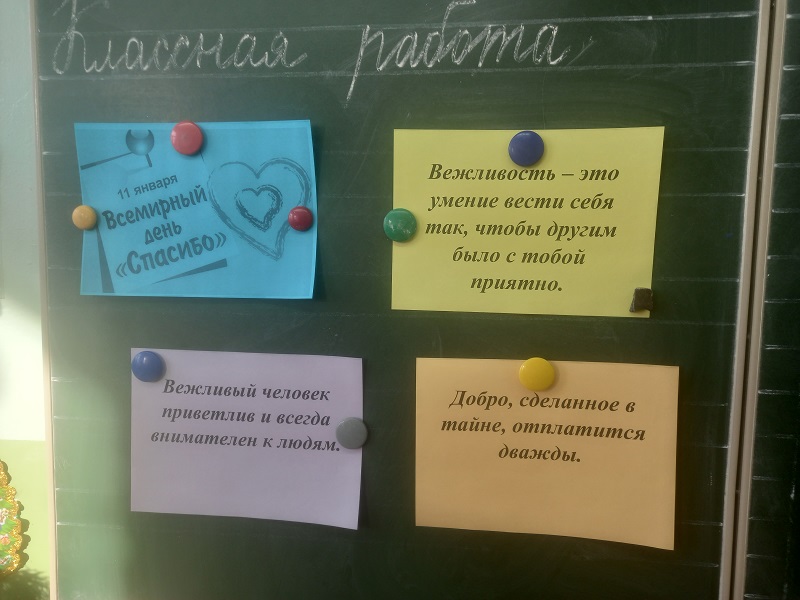 Классная работа
11 января
Всемирный
день
«Спасибо»
Вежливость – это
умение вести себя
так, чтобы другим
было с тобой
приятно.
Вежливый человек
приветлив и всегда
внимателен к людям.
Добро, сделанное в
тайне, отплатится
дважды.